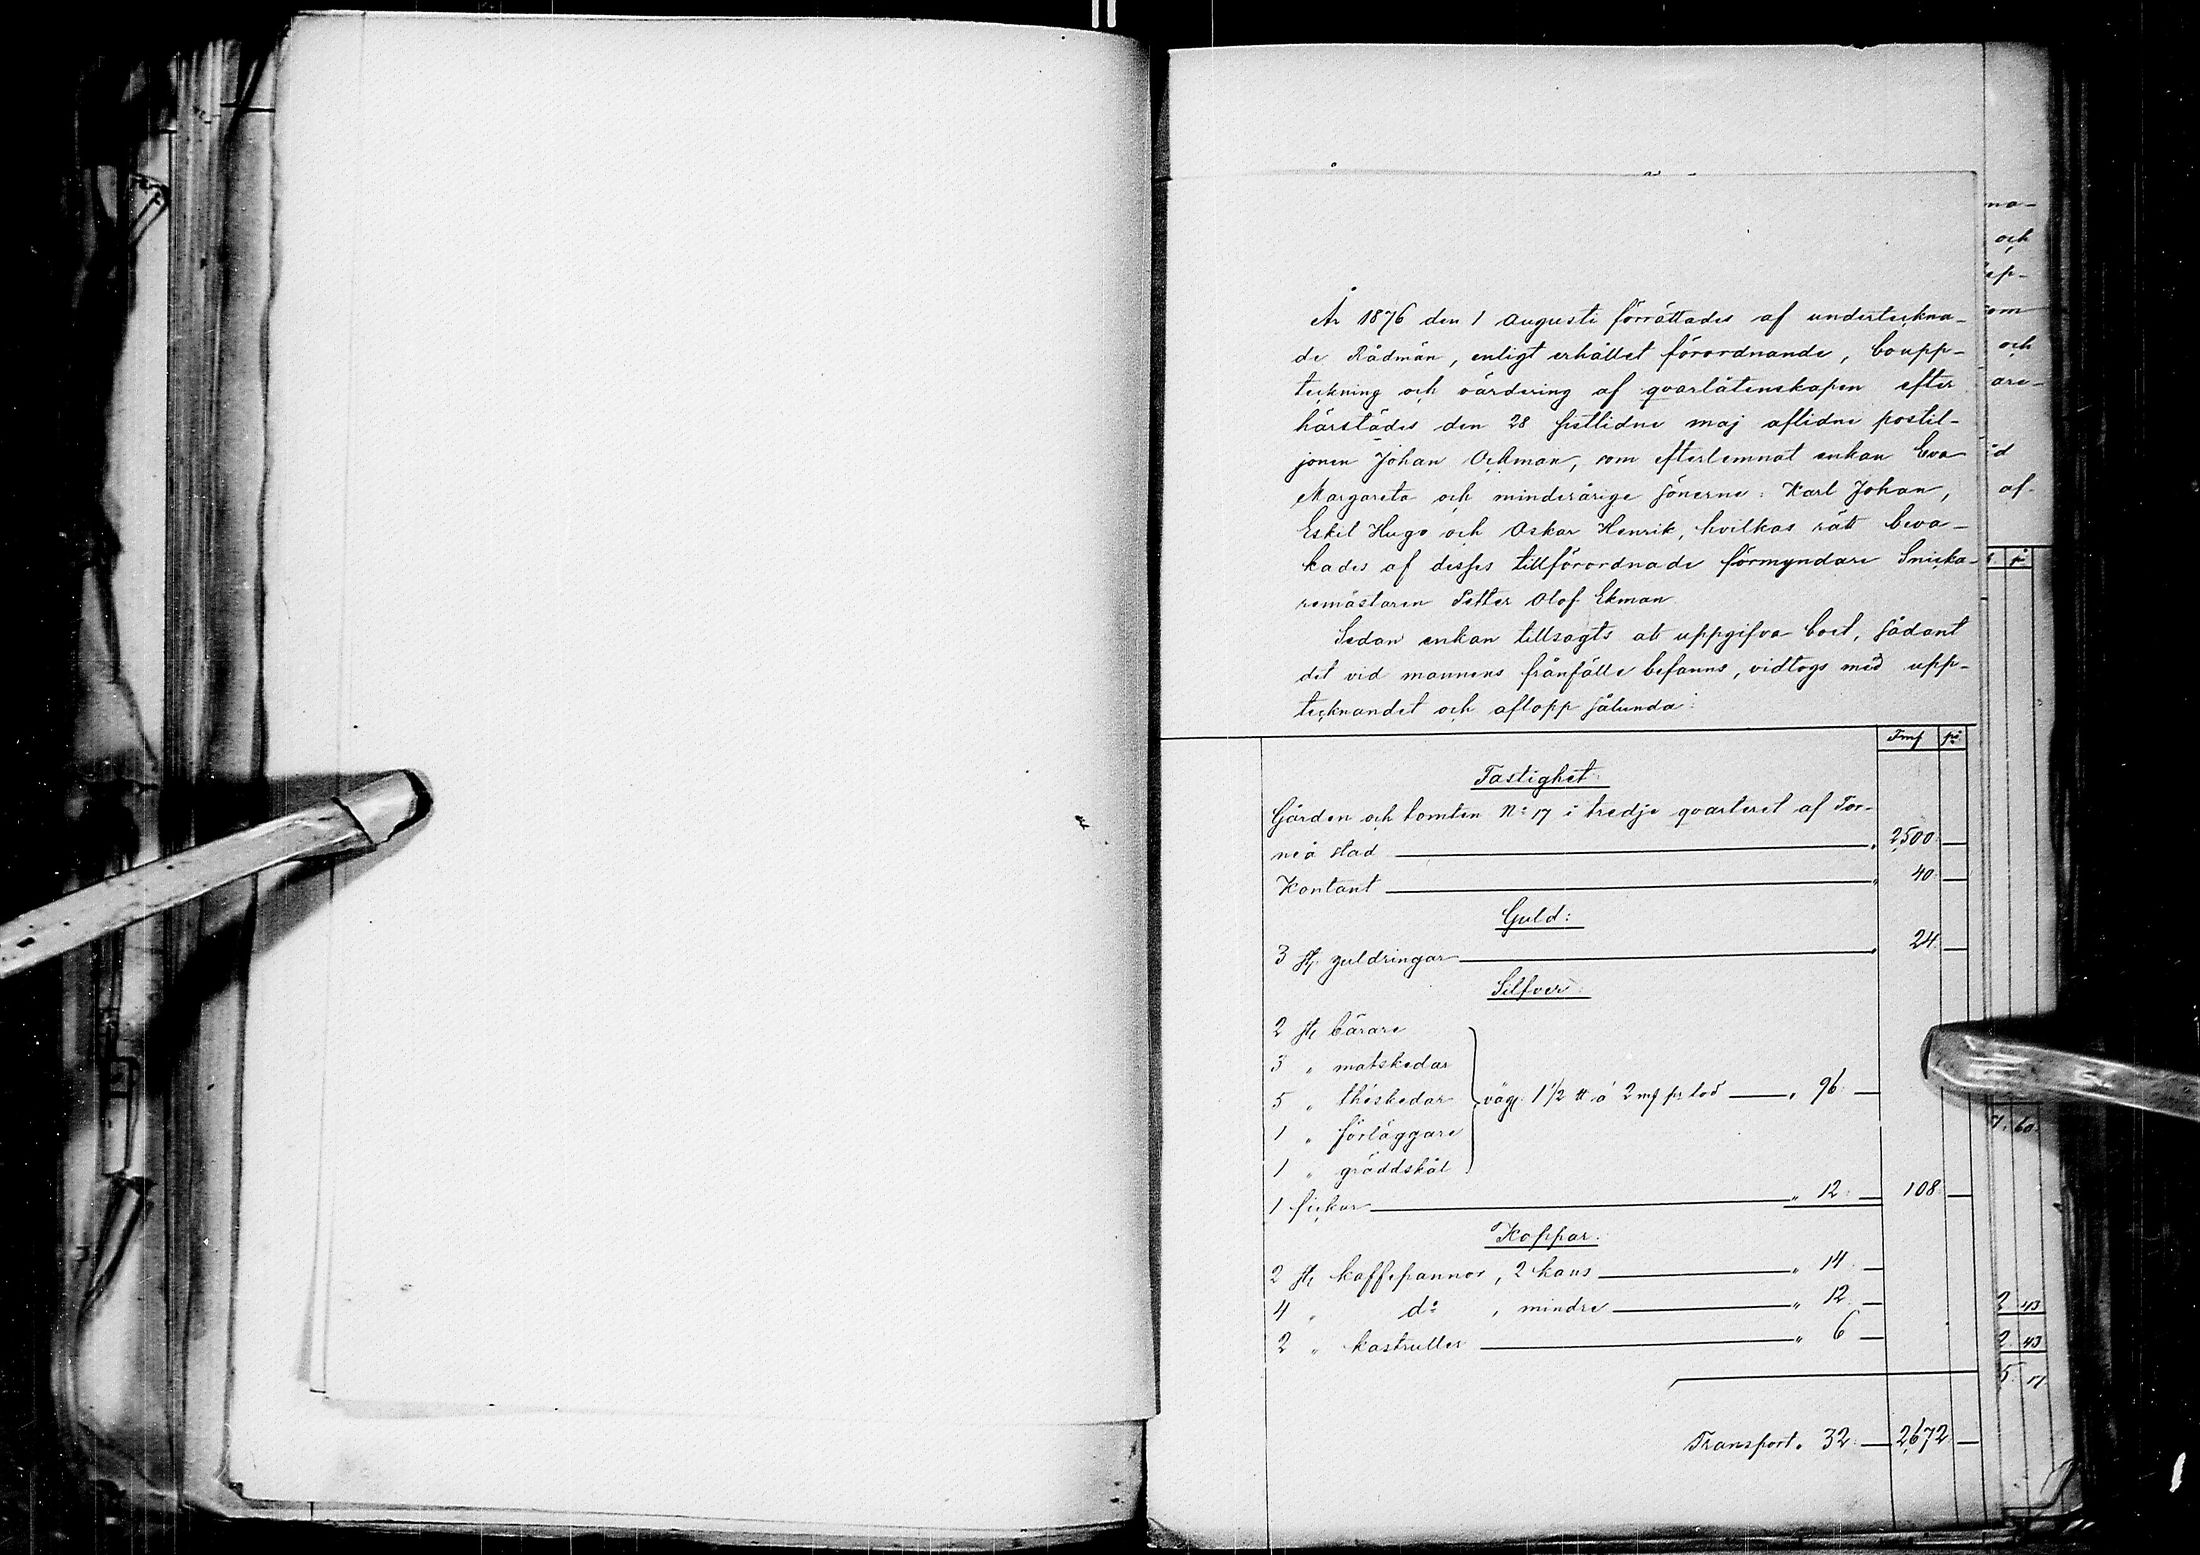 År 1876 den 1 Augusti förrättades af underteckna-
de Rådmän, enligt erhållet förordnande, boupp-
teckning och värdering af qvarlåtenskapen efter
härstädes den 28 sistlidne maj aflidne postil-
jonen Johan Ockman, som efterlemnat enkan Eva
Margareta och minderårige sönerne: Karl Johan,
Eskil Hugo och Oskar Henrik, hvilkas rätt beva-
kades af desses tillförordnade förmyndare Snicka-
remästaren Petter Olof Ekman.
Sedan enkan tillsagts att uppgifva boet, sådant
det vid mannens frånfälle befanns, vidtogs med upp-
tecknandet och aflopp sålunda:
Fmf pi
Fastighet:
Gården och tomten No 17 i tredje qvarteret af Tor-
neå stad — " 2,500 —
Kontant — " 40 —
Guld:
3 st. guldringar — " 24 —
Silfver:
2 st. bärare
3 " matskedar
5 " théskedar väg. 1 1/2 ℔ á 2 mf pr lod — " 96 —
1 " förläggare
1 " gräddskål
1 fickur — " 12 — 108 —
Koppar:
2 st. kaffepannor, 2 kans — " 14 —
4 " do , mindre — " 12 —
2 " kastruller — " 6 —
Transport " 32 — 2,672 —
na-
och
som
och
are-
af
7. 60.
2 43
2. 43
5. 17